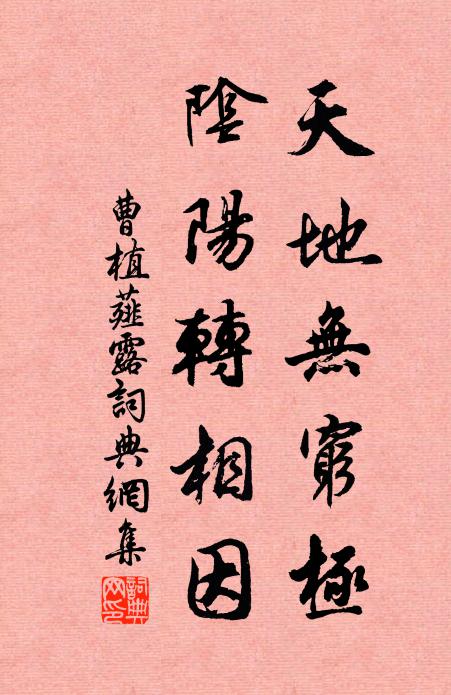 天地無窮極
陰陽轉相因
曹植薤露詞典網集
詞典網印